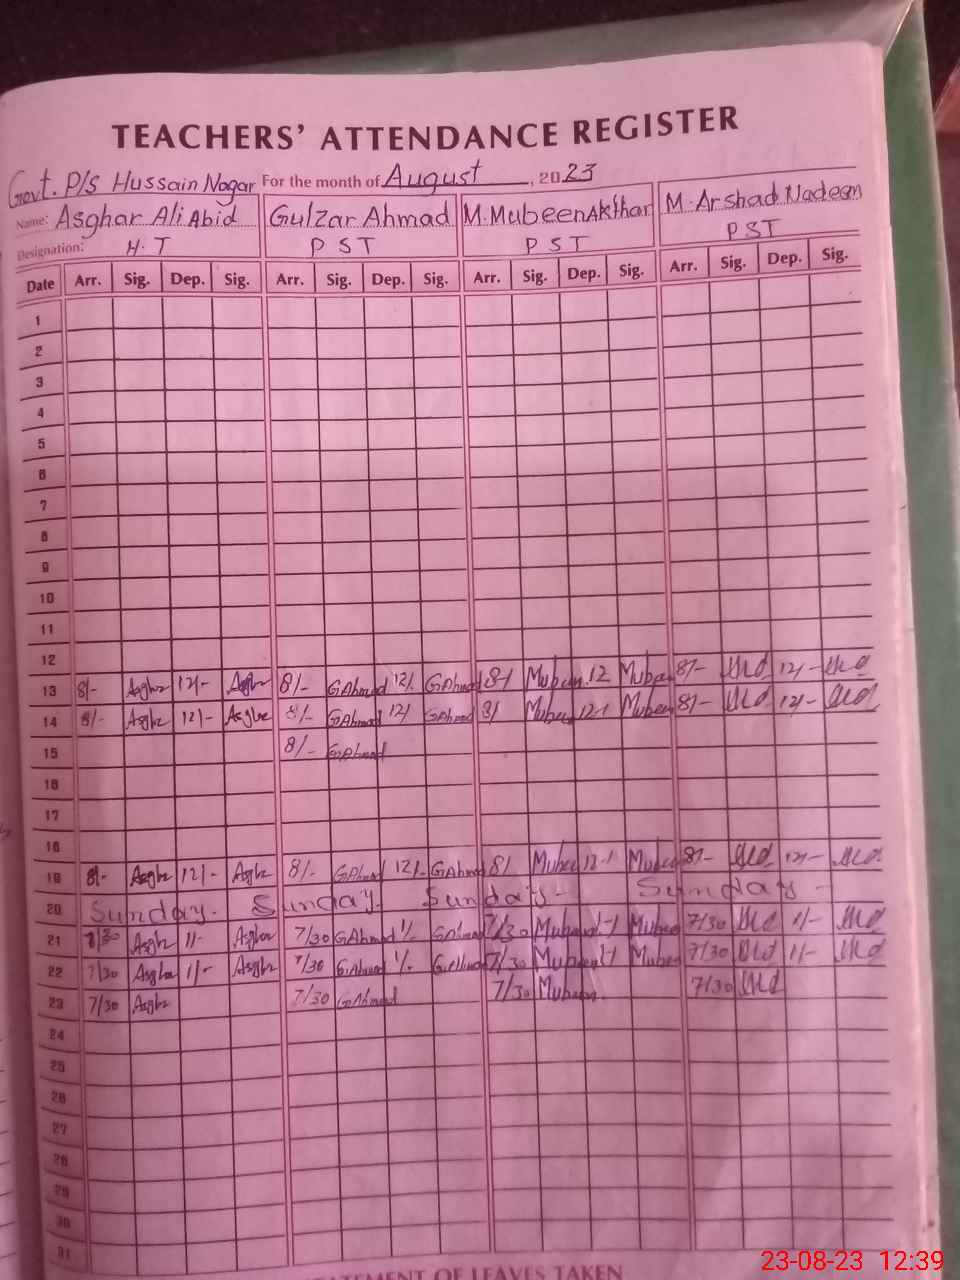 TEACHERS' ATTENDANCE REGISTER
Govt. P/S Hussain Nagar For the month of August, 2023
Name: Asghar Ali Abid Gulzar Ahmad M. Mubeen Akthar M. Arshad Nadeem
Designation: H.T PST PST PST
Date Arr. Sig. Dep. Sig. Arr. Sig. Dep. Sig. Arr. Sig. Dep. Sig. Arr. Sig. Dep. Sig.
1
2
3
4
5
6
7
8
9
10
11
12
13 8/- 12/- 8/- GAhmad 12/. GAhmad 8/ Mubeen 12 Mubeen 8/- 12/-
14 8/- 12/- 8/- GAhmad 12/ GAhmad 8/ Mubeen 12-1 Mubeen 8/- 12/-
15 8/- GAhmad
16
17
18
19 8/- 12/- 8/- GAhmad 12/- GAhmad 8/ Mubeen 12-1 Mubeen 8/- 12/-
20 Sunday. Sunday. Sunday- Sunday-
21 7/30 1/- 7/30 GAhmad 1/- GAhmad 7/30 Mubeen 1-1 Mubeen 7/30 1/-
22 7/30 1/- 7/30 GAhmad 1/. 7/30 Mubeen 1-1 Mubeen 7/30 1/-
23 7/30 7/30 GAhmad 7/30 Mubeen 7/30
24
25
26
27
28
29
30
31
OF LEAVES TAKEN
23-08-23 12:39